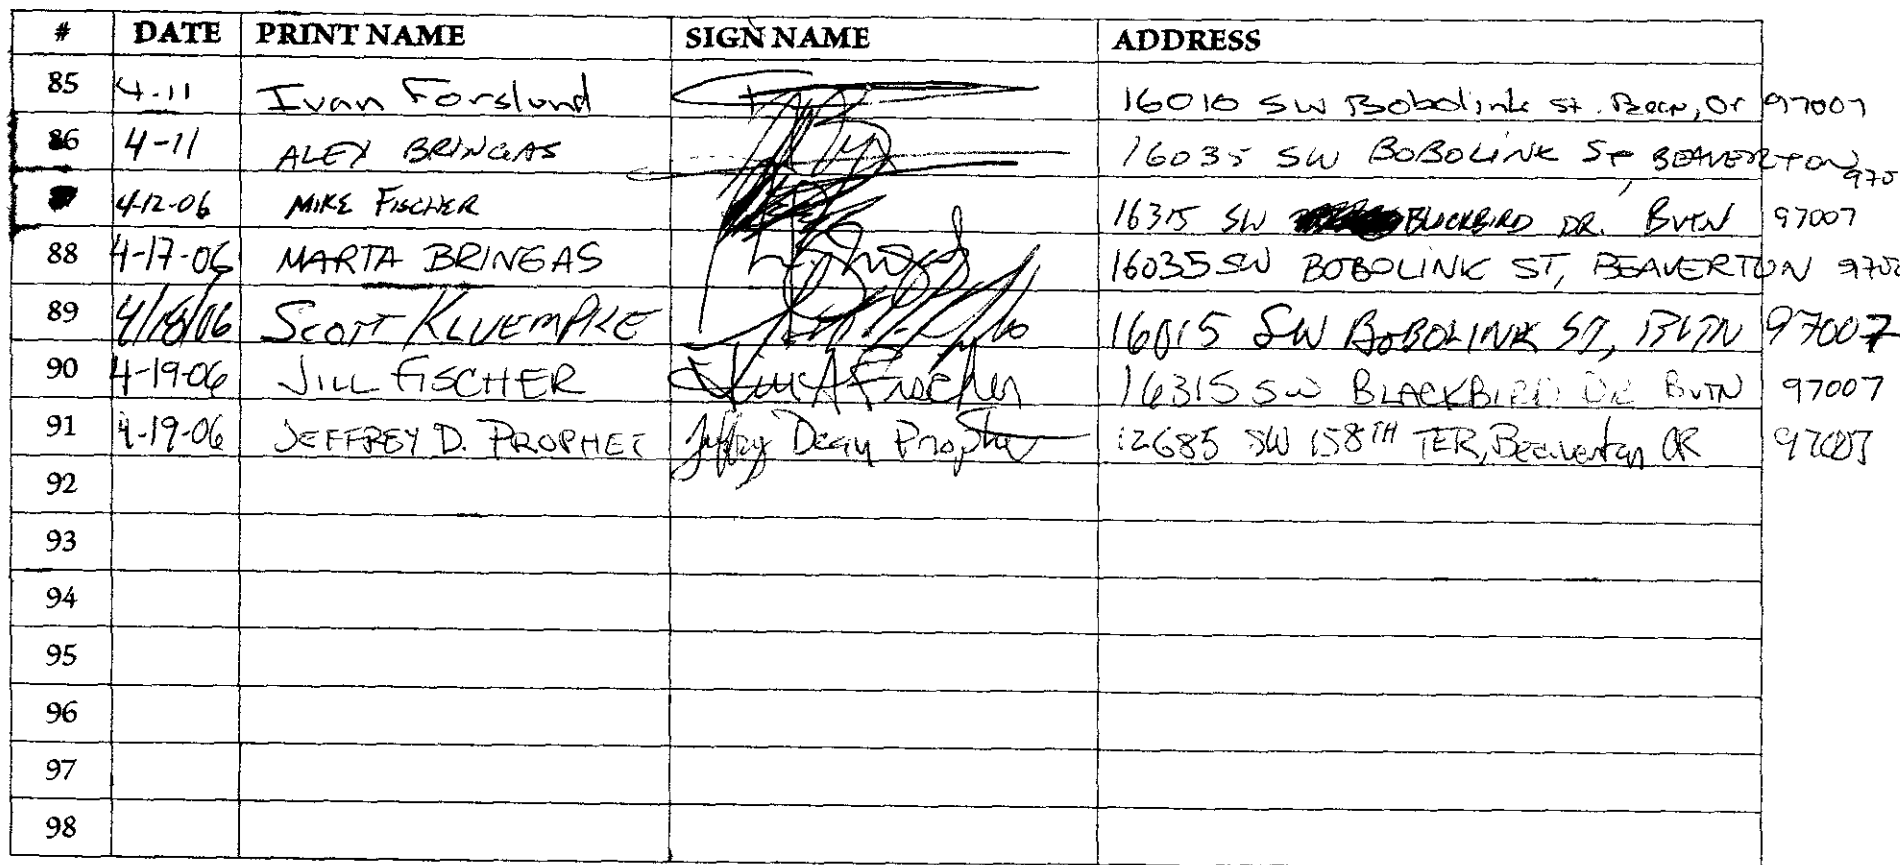 # DATE PRINT NAME SIGN NAME ADDRESS
85 4-11 Ivan Forslund 16010 SW Bobolink St. Or 97007
86 4-11 ALEX BRINGAS 16035 SW BOBOLINK ST, BEAVERTON 970
4-12-06 MIKE FISCHER 16315 SW BLACKBIRD DR. BVTN 97007
88 4-17-06 MARTA BRINGAS 16035 SW BOBOLINK ST, BEAVERTON 9700
89 4/18/06 SCOTT KLUEMPKE 16015 SW BOBOLINK ST, BVTN 97007
90 4-19-06 JILL FISCHER Jill A Fischer 16315 SW BLACKBIRD DR BVTN 97007
91 4-19-06 JEFFREY D. PROPHET Jeffrey Dean Prophet 12685 SW 158TH TER, Beaverton OR 97007
92
93
94
95
96
97
98